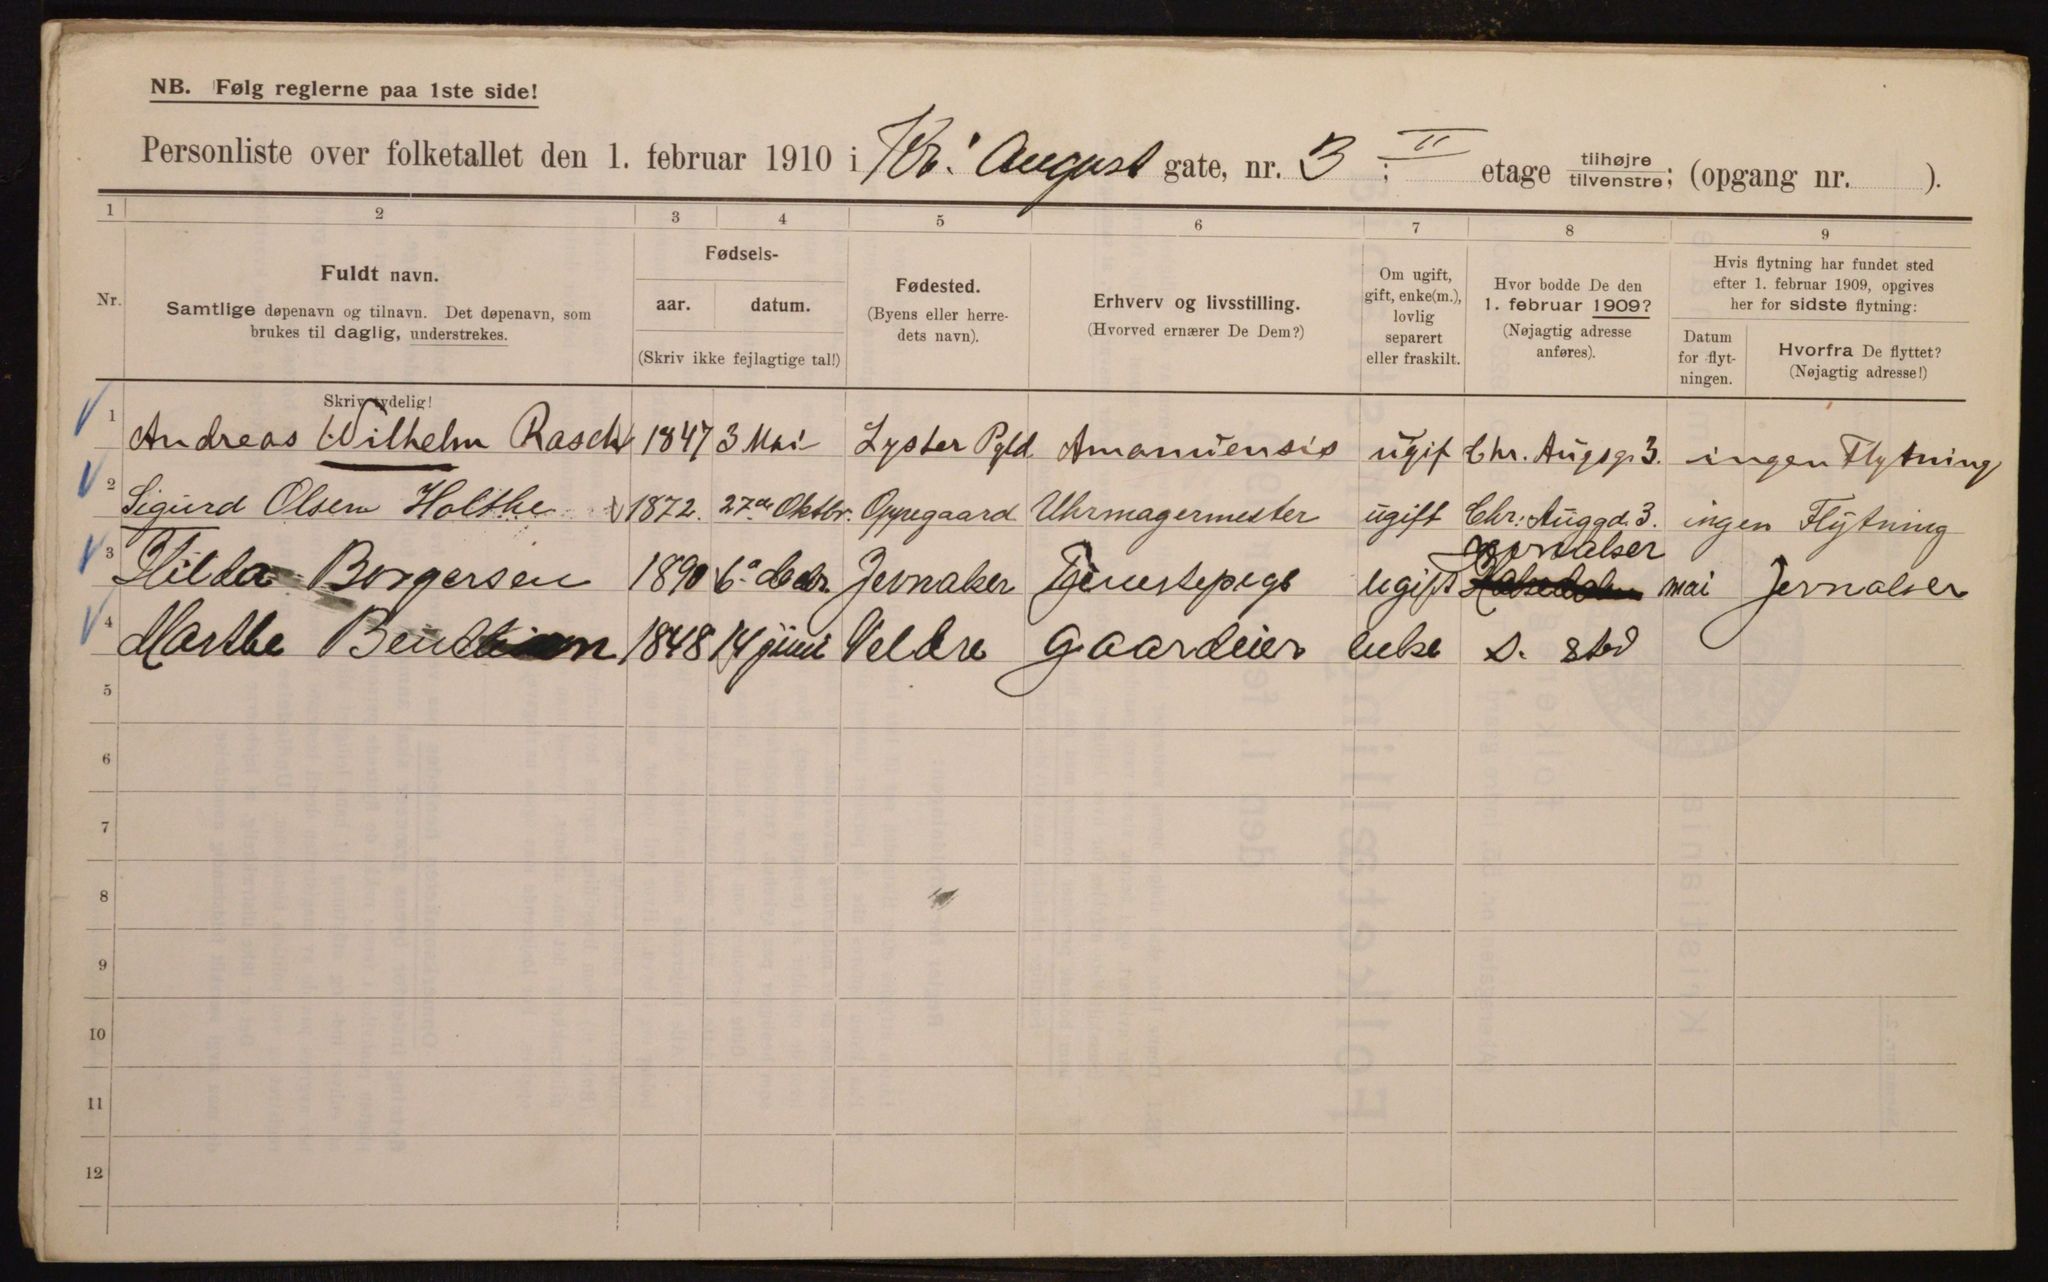 NB. Følg reglerne paa 1ste side!
Personliste over folketallet den 1. februar 1910 i Kr. August gate, nr. 3 : II etage tilhøjre tilvenstre; (opgang nr. ).
1 2 3 4 5 6 7 8 9
Nr. Fuldt navn. Samtlige døpenavn og tilnavn. Det døpenavn, som brukes til daglig, understrekes.
Fødsels- aar. datum. (Skriv ikke fejlagtige tal!)
Fødested. (Byens eller herredets navn).
Erhverv og livsstilling. (Hvorved ernærer De Dem?)
Om ugift, gift, enke(m.), lovlig separert eller fraskilt.
Hvor bodde De den 1. februar 1909? (Nøjagtig adresse anføres).
Hvis flytning har fundet sted efter 1. februar 1909, opgives her for sidste flytning:
Datum for flytningen. Hvorfra De flyttet? (Nøjagtig adresse!)
Skriv tydelig!
1 Andreas Wilhelm Rasch 1847 3 Mai Lyster Pgld Amanuensis ugif Chr. Augsg. 3. ingen Flytning
2 Sigurd Olsen Holthe 1872. 27de Oktbr. Oppegaard Uhrmagermester ugift Chr: Auggd. 3. ingen Flytning
Jevnalser
3 Hilda Borgersen 1890 6 Jevnaker Tjenestepige ugift mai Jevnalser
4 Marthe 1848 14 juni Veldre Gaardeier enke d. sted
5
6
7
8
9
10
11
12